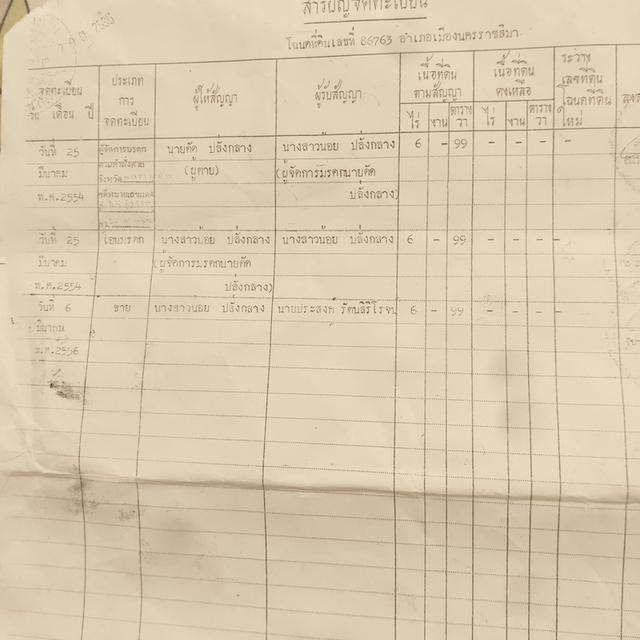 สารบัญจดทะเบียน
โฉนดที่ดินเลขที่ 86763 อำเภอเมืองนครราชสีมา
จดทะเบียน
วัน เดือน ปี
ประเภท
การ
จดทะเบียน
ผู้ให้สัญญา
ผู้รับสัญญา
เนื้อที่ดิน
ตามสัญญา
ไร่ งาน ตาราง
วา
เนื้อที่ดิน
คงเหลือ
ไร่ งาน ตาราง
วา
ระวาง
เลขที่ดิน
โฉนดที่ดิน
ใหม่
วันที่ 25 ผู้จัดการมรดก นายคัด ปลั่งกลาง นางสาวน้อย ปลั่งกลาง 6 - 99 - - - -
มีนาคม ตามคำสั่งศาล (ผู้ตาย) (ผู้จัดการมรดกนายคัด
จังหวัด
พ.ศ.2554 ปลั่งกลาง)
วันที่ 25 โอนมรดก นางสาวน้อย ปลั่งกลาง นางสาวน้อย ปลั่งกลาง 6 - 99 - - - -
มีนาคม (ผู้จัดการมรดกนายคัด
พ.ศ.2554 ปลั่งกลาง)
วันที่ 6 ขาย นางสาวน้อย ปลั่งกลาง นายประสงค์ 6 - 99 - - - -
มีนาคม
พ.ศ.2556